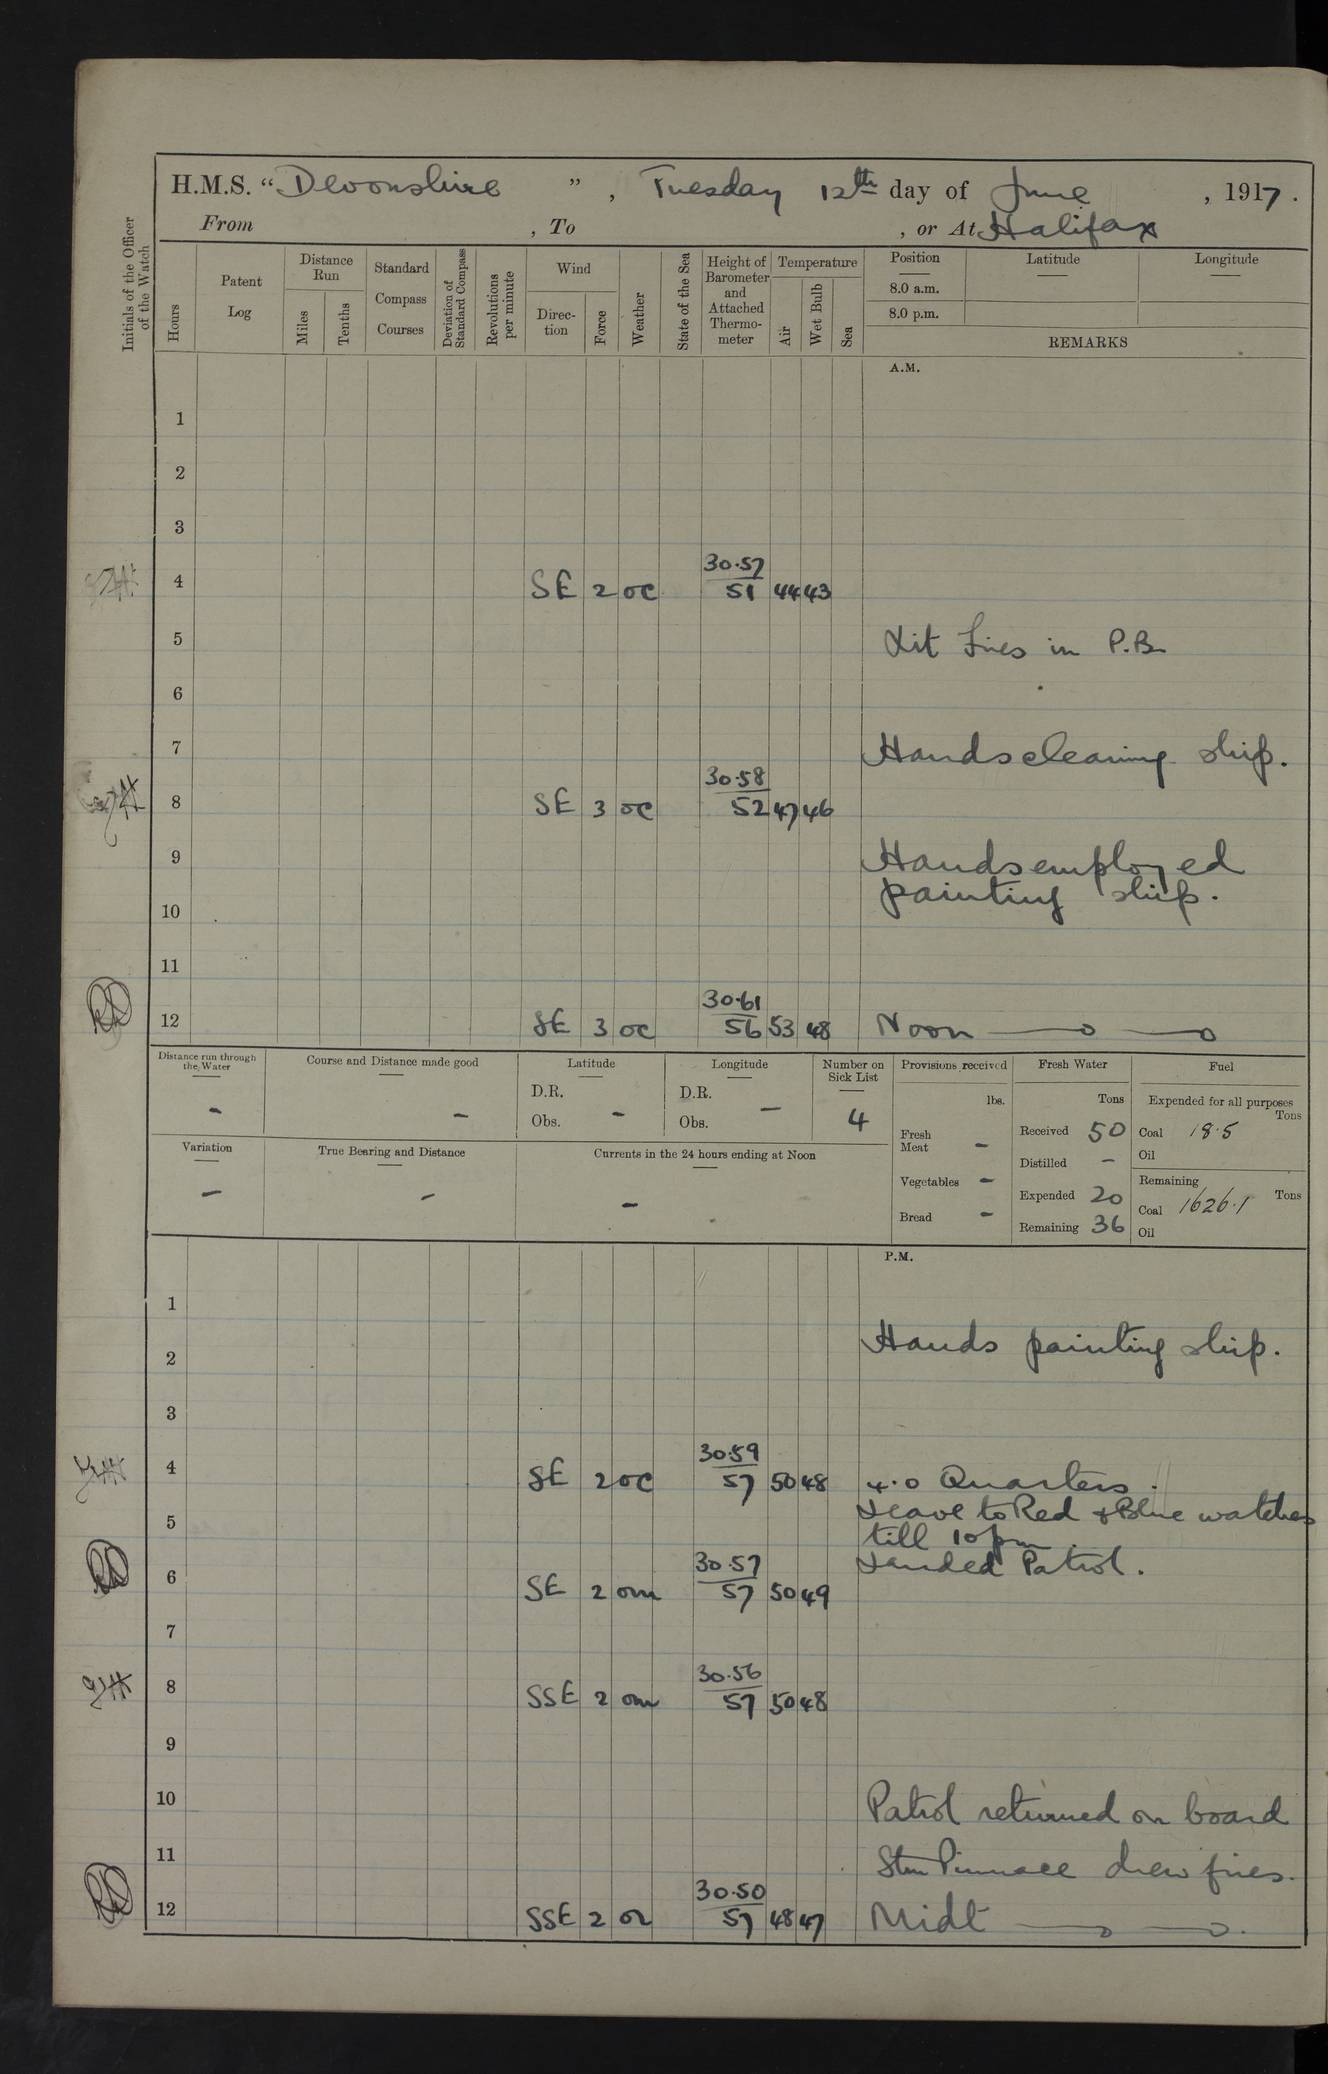 H.M.S. "Devonshire", Tuesday 12th day of June, 1917.
From , To , or At Halifax
Initials of the Officer of the Watch
Hours
Patent Log
Distance Run
Miles
Tenths
Standard Compass Courses
Deviation of Standard Compass
Revolutions per minute
Wind
Direction
Force
Weather
State of the Sea
Height of Barometer and Attached Thermometer
Temperature
Air
Wet Bulb
Sea
Position
Latitude
Longitude
8.0 a.m.
8.0 p.m.
REMARKS
A.M.
1
2
3
30.57
4 SE 2 oc 51 44 43
5 Lit fires in P.B.
6
7 Hands cleaning ship.
30.58
8 SE 3 oc 52 47 46
9 Hands employed
painting ship.
10
11
30.61
12 SE 3 oc 56 53 48 Noon
Distance run through the Water
-
Course and Distance made good
-
Latitude
D.R.
Obs. -
Longitude
D.R.
Obs. -
Number on Sick List
4
Provisions received
lbs.
Fresh Meat -
Vegetables -
Bread -
Fresh Water
Tons
Received 50
Distilled -
Expended 20
Remaining 36
Fuel
Expended for all purposes
Tons
Coal 18.5
Oil
Remaining
Tons
Coal 1626.1
Oil
Variation
-
True Bearing and Distance
-
Currents in the 24 hours ending at Noon
-
P.M.
1
Hands painting ship.
2
3
30.59
4 SE 2 oc 57 50 48 4.0 Quarters.
Leave to Red & Blue watches
5
till 10 pm.
30.57 Landed Patrol.
6 SE 2 om 57 50 49
7
30.56
8 SSE 2 om 57 50 48
9
10 Patrol returned on board
11 Stm Pinnace drew fires.
30.50
12 SSE 2 or 57 48 47 Midt